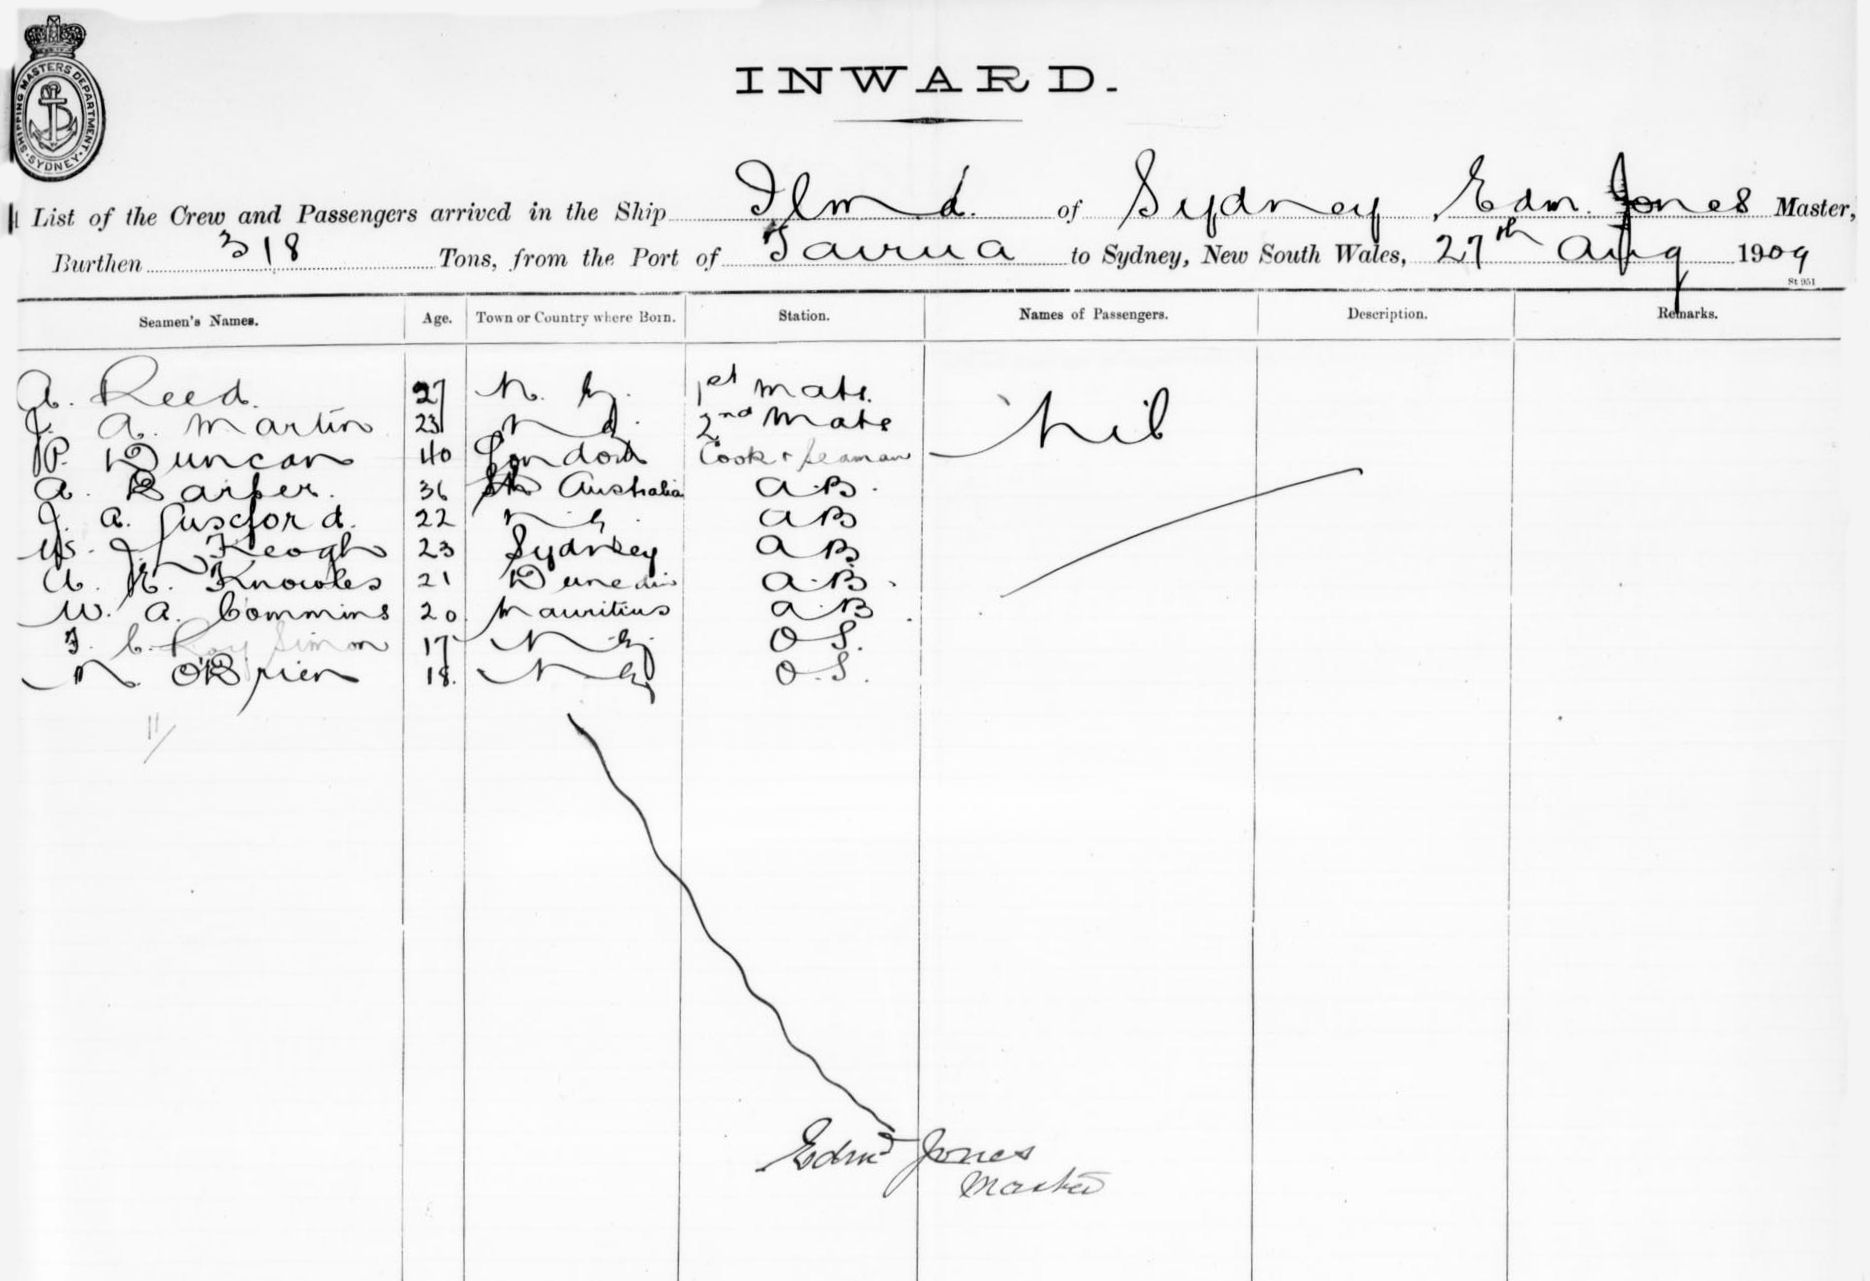 SHIPPING MASTERS DEPARTMENT
SYDNEY
INWARD.
List of the Crew and Passengers arrived in the Ship Ilma of Sydney Edm. Jones Master,
Burthen 318 Tons, from the Port of Tairua to Sydney, New South Wales, 27th Aug 1909
St 951
Seamen's Names. Age. Town or Country where Born. Station. Names of Passengers. Description. Remarks.
A. Reed. 27 N. Z. 1st Mate. Nil
J. A. Martin 23 N Z. 2nd Mate
P. Duncan 40 London Cook & Seaman
A. 36 Sth Australia A.B.
J. A. 22 N.Z. AB
Ws. J. Keogh 23 Sydney AB
A. Knowles 21 Dunedin A.B.
W. A. Commins 20 Mauritius A.B.
F. C. Ray Simon 17 N Z. O S.
M O'Brien 18. N Z O.S.
11/
Edmd Jones
Master